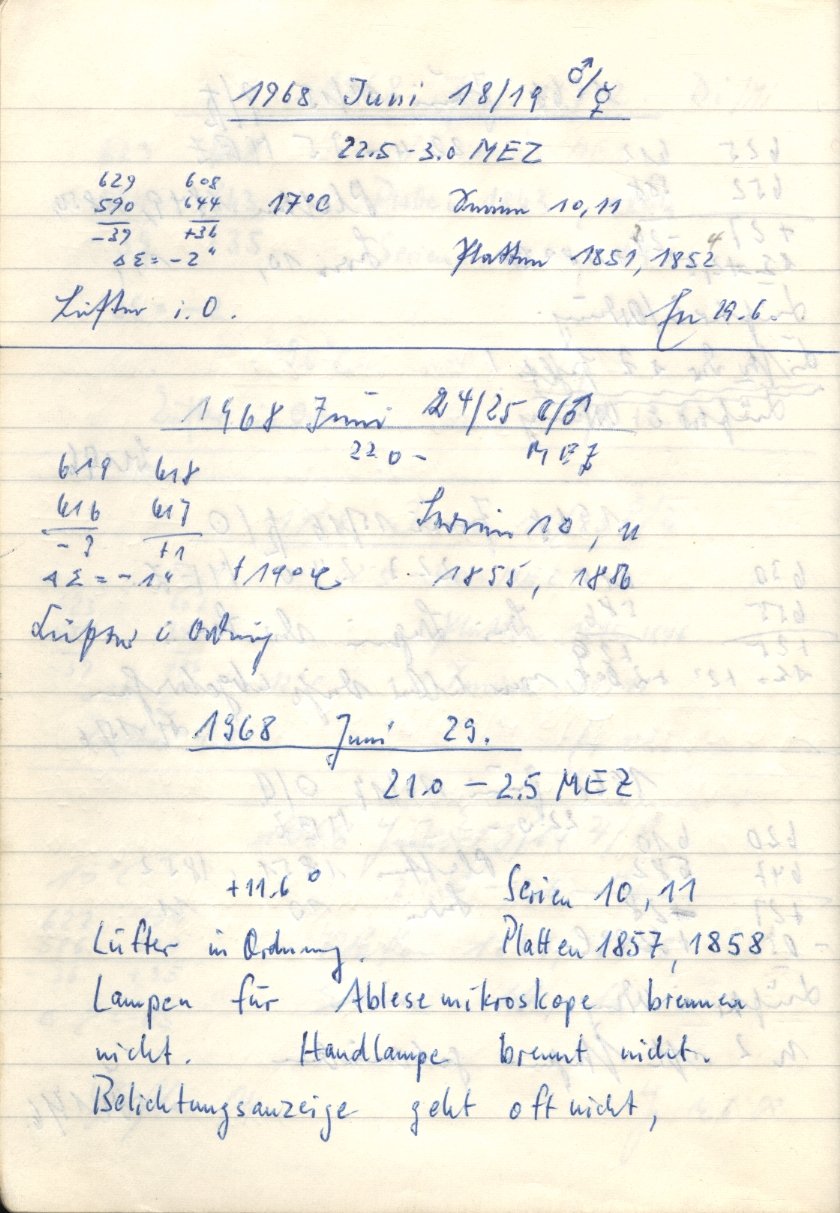 1968 Juni 18/19 ♂/☿
22.5-3.0 MEZ
629 608
590 644 17°C Serien 10, 11
-39 +36
ΔΣ = -2" Platten 1851, 1852
3 4
Lüfter i. O. 29.6.
1968 Juni 24/25 ☾/♂
22.0 - MEZ
619 618
616 617 Serien 10, 11
-3 +1
ΔΣ = -1" +19°C 1855, 1856
Lüfter i Ordnung
1968 Juni 29.
21.0 - 2.5 MEZ
+11.6° Serien 10, 11
Lüfter in Ordnung. Platten 1857, 1858
Lampen für Ablesemikroskope brennen
nicht. Handlampe brennt nicht.
Belichtungsanzeige geht oft nicht,